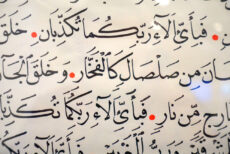 فَبِأَيِّ آلَاءِ رَبِّكُمَا تُكَذِّبَانِ • خَلَقَ
مِن صَلْصَالٍ كَالْفَخَّارِ • وَخَلَقَ الْجَانَّ
مِّن نَّارٍ • فَبِأَيِّ آلَاءِ رَبِّكُمَا تُكَذِّبَانِ